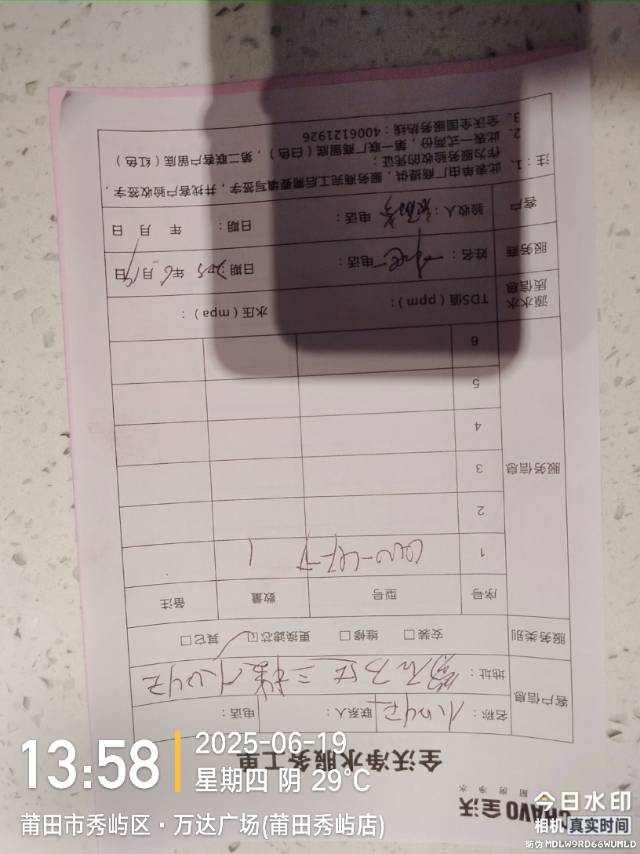 CHAVO全沃
商用净水
全沃净水服务工单
客户信息
名称：
联系人：
电话：
地址：
服务类别
安装□ 维修□ 更换滤芯□ 其它□
服务信息
序号 型号 数量 备注
1 1
2
3
4
5
6
源水水质信息
TDS值（ppm）： 水压（mpa）：
服务商
姓名： 电话： 日期：2025年6月19日
客户
验收人： 电话： 日期： 年 月 日
注：1、此表单由厂商提供，服务商完工后需要填写签字，并找客户验收签字，
作为服务验收的凭证；
2、此表一式两份，第一联厂商留底（白色），第二联客户留底（红色）
3、全沃全国服务热线：4006121926
13:58
2025-06-19
星期四 阴 29°C
莆田市秀屿区·万达广场(莆田秀屿店)
今日水印
相机 真实时间
防伪 MDLW9RD66WUMLD